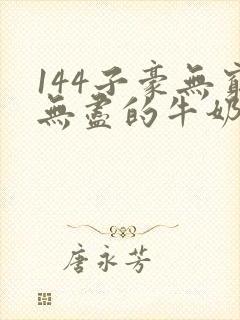 144子豪無窮
無盡的牛奶
唐永芳